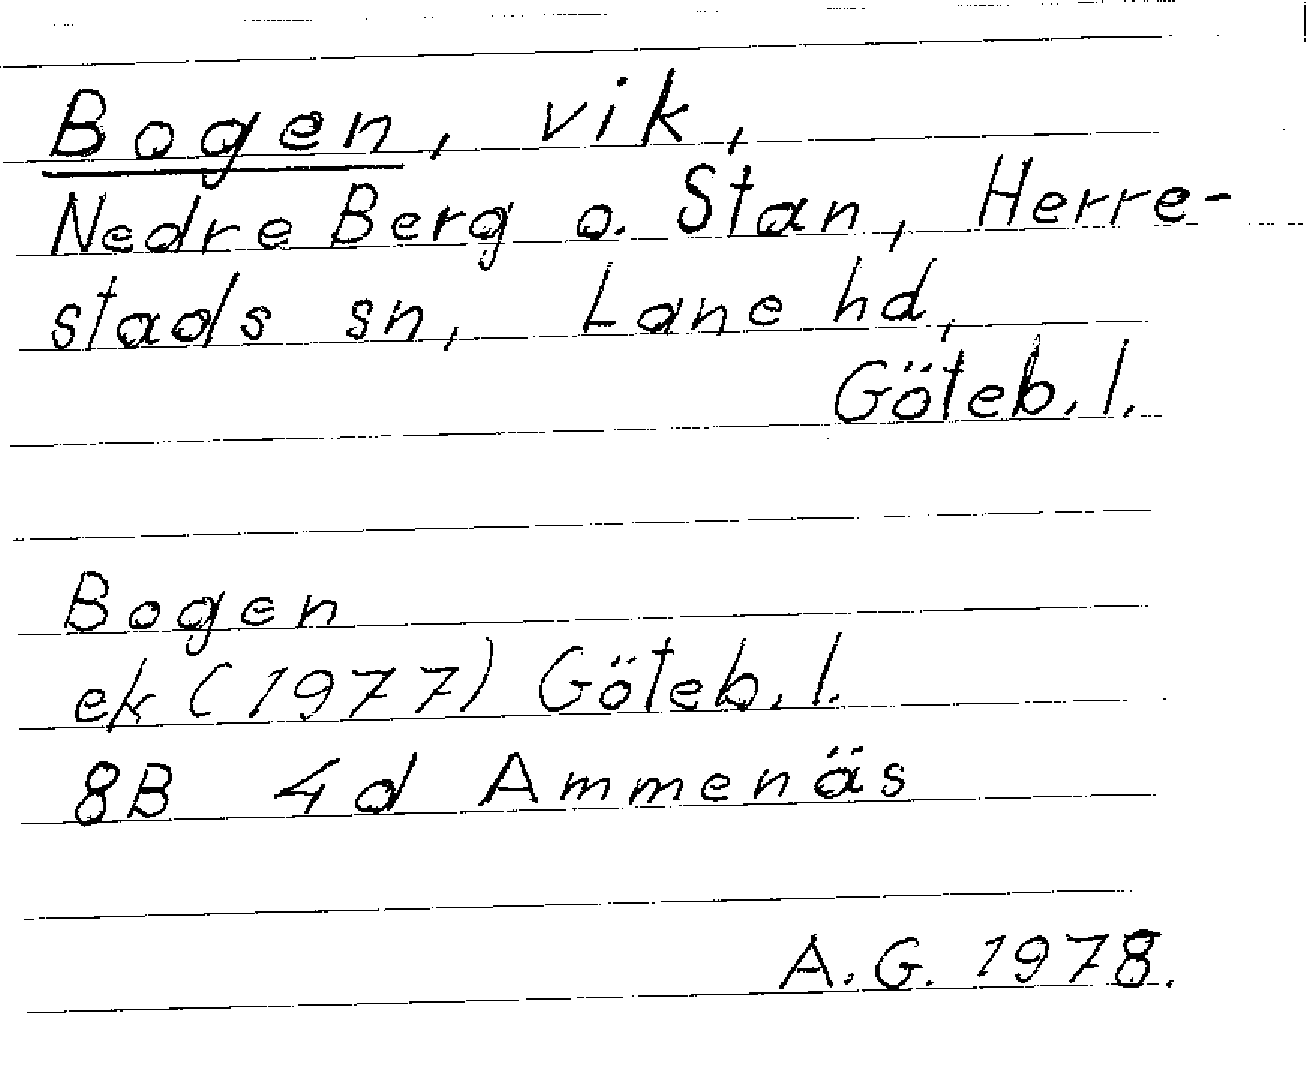 Bogen, vik,
Nedre Berg o. Stan, Herre-
stads sn, Lane hd,
Göteb. l.
Bogen
ek (1977) Göteb. l.
8B 4d Ammenäs
A.G. 1978.